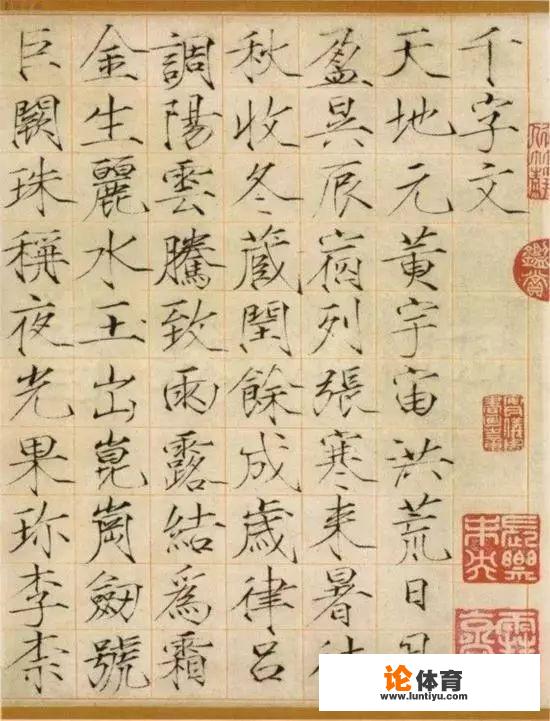 千字文
天地元黃宇宙洪荒日月
盈昃辰宿列張寒来暑往
秋收冬蔵閏餘成歲律吕
調陽雲騰致雨露結爲霜
金生麗水玉出崑崗劒號
巨闕珠稱夜光果珎李柰
鑑賞
论体育